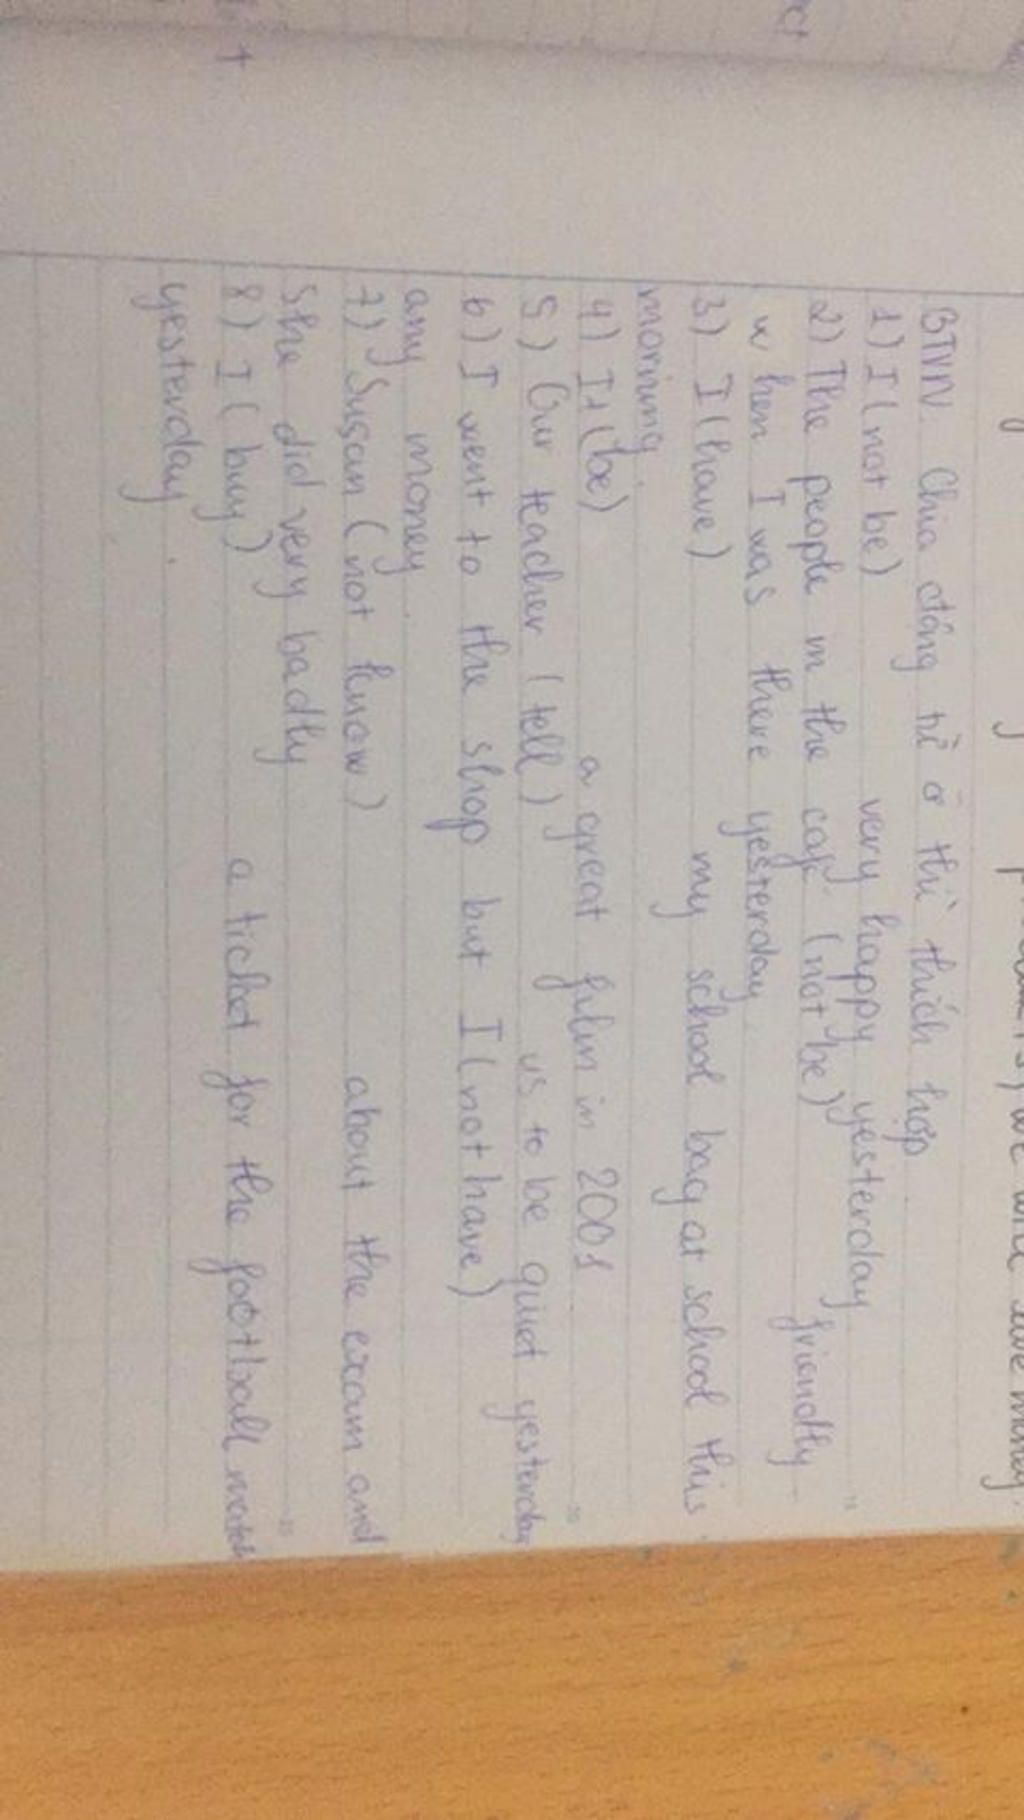 BTVN. Chia động từ ở thì thích hợp
1) I (not be) very happy yesterday
2) The people in the café (not be) friendly
when I was there yesterday
3) I (have) my school bag at school this
morning.
4) It (be) a great film in 2001
5) Our teacher (tell) us to be quiet yesterday
6) I went to the shop but I (not have)
any money.
7) Susan (not know) about the exam and
she did very badly
8) I (buy) a ticket for the football match
yesterday.